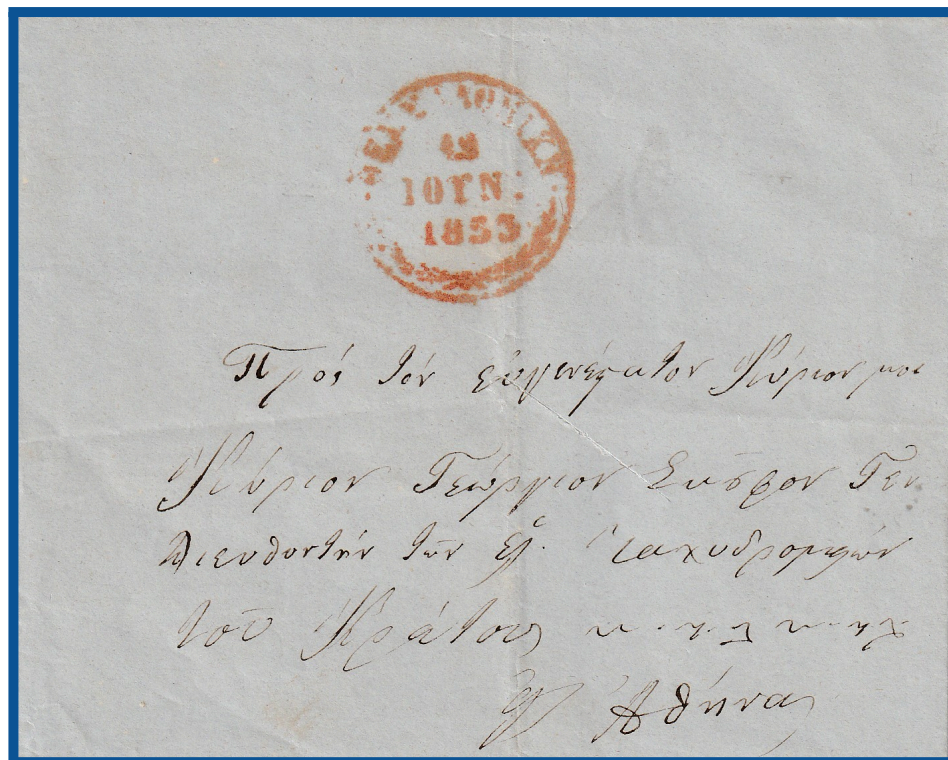 ΘΕΣΣΑΛΟΝΙΚΗ
ΙΟΥΝ.
1853
Πρός τόν εὐγενέστατον Κύριον μου
Κύριον Γεώργιον Σκοῦφον Γεν
Διευθυντήν τῶν Ταχυδρομείων
τοῦ Κράτους
Ἀθήνας